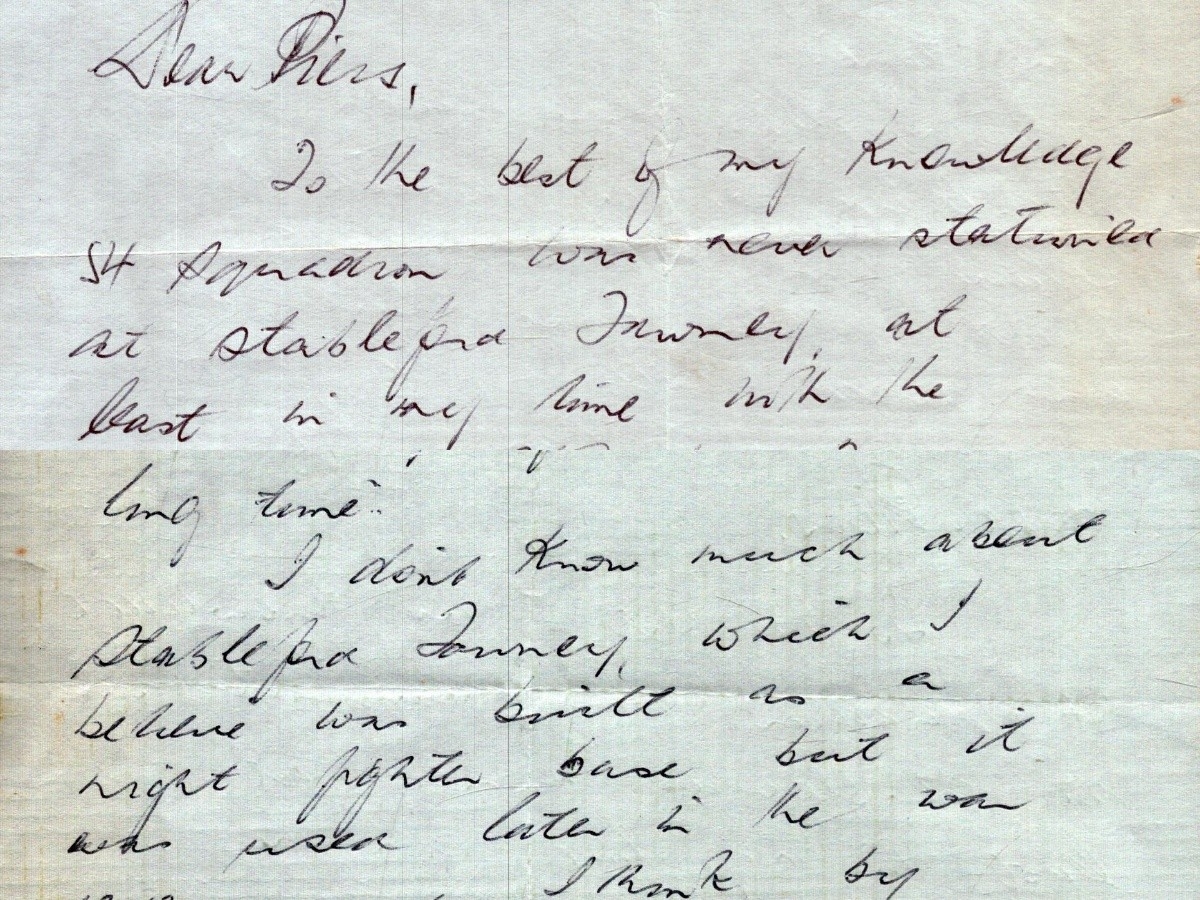 Dear Piers,
To the best of my knowledge
54 Squadron was never stationed
at Stapleford Tawney, at
least in my time with the
long time.
I don't know much about
Stapleford Tawney, which I
believe was built as a
night fighter base but it
was used later in the war
I think by